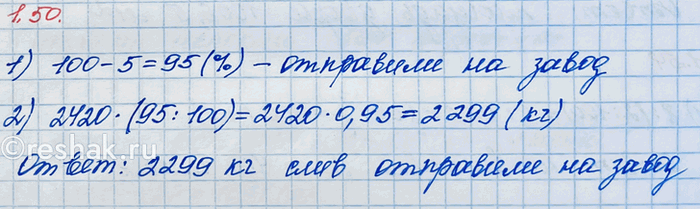 1.50.
1) 100-5=95(%) – отправили на завод
2) 2420·(95:100)=2420·0,95=2299 (кг)
Ответ: 2299 кг слив отправили на завод
©reshak.ru